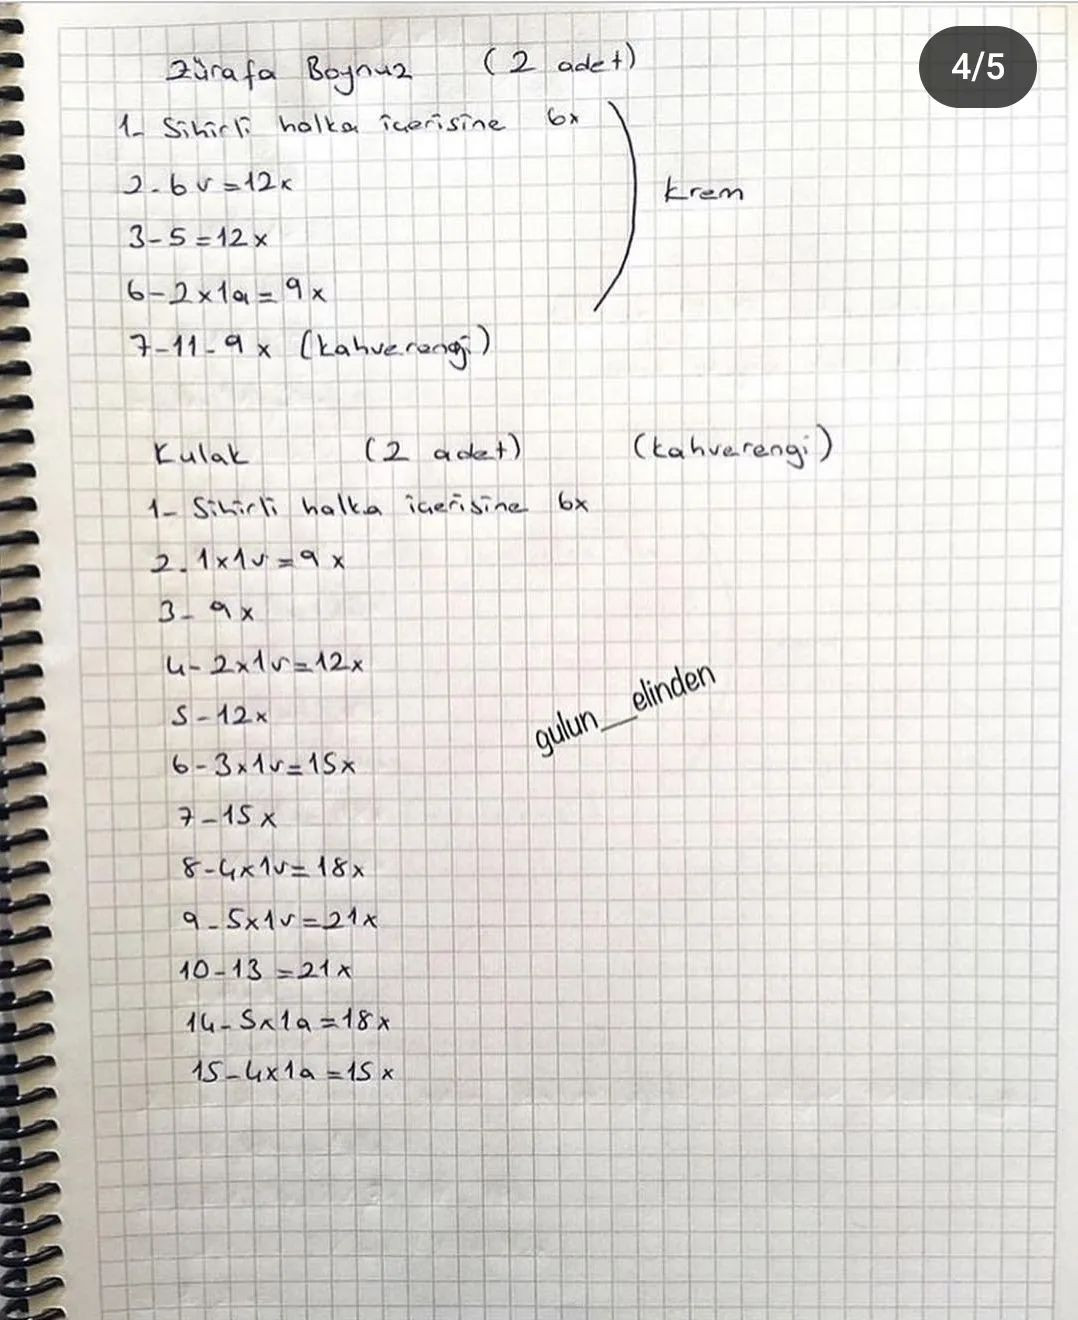 4/5
Zürafa Boynuz (2 adet)
1- Sihirli halka içerisine 6x
2-6v=12x
3-5=12x
6-2x1a=9x
Krem
7-11-9x (kahverengi)
Kulak (2 adet) (kahverengi)
1- Sihirli halka içerisine 6x
2-1x1v=9x
3-9x
4-2x1v=12x
5-12x
6-3x1v=15x
7-15x
8-4x1v=18x
9-5x1v=21x
10-13=21x
14-5x1a=18x
15-4x1a=15x
gulun__elinden